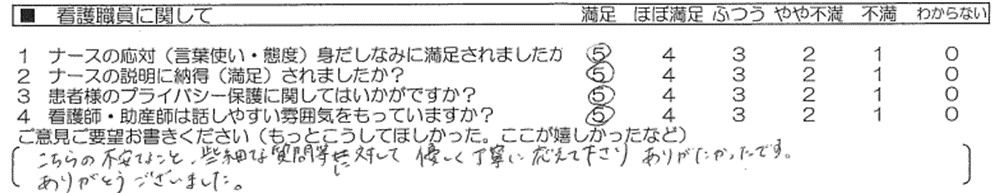 ■ 看護職員に関して 満足 ほぼ満足 ふつう やや不満 不満 わからない
1 ナースの応対（言葉使い・態度）身だしなみに満足されましたか 5 4 3 2 1 0
2 ナースの説明に納得（満足）されましたか？ 5 4 3 2 1 0
3 患者様のプライバシー保護に関してはいかがですか？ 5 4 3 2 1 0
4 看護師・助産師は話しやすい雰囲気をもっていますか？ 5 4 3 2 1 0
ご意見ご要望お書きください（もっとこうしてほしかった。ここが嬉しかったなど）
こちらの不安なこと、些細な質問等に対して 優しく丁寧に応えて下さり ありがたかったです。
ありがとうございました。